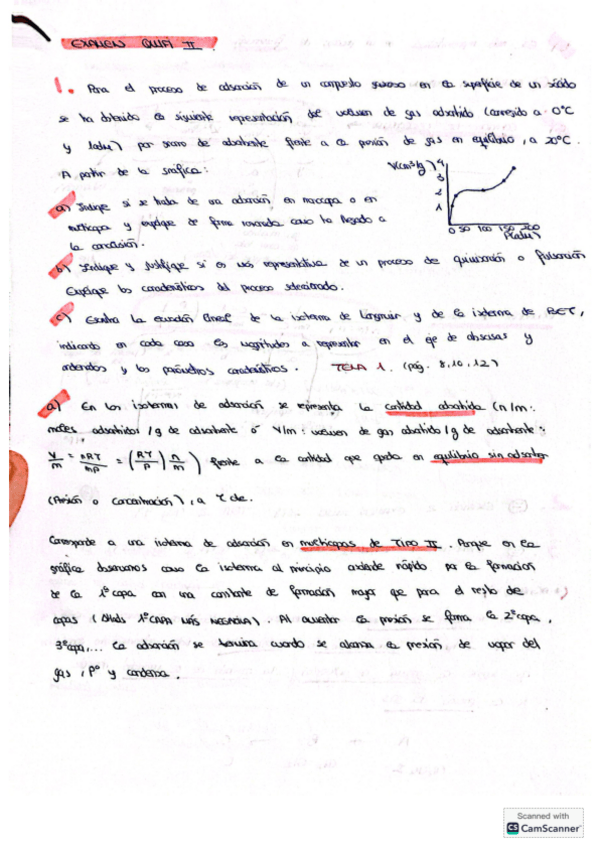 EXAMEN QUIFI II
1. Para el proceso de adsorción de un compuesto gaseoso en la superficie de un sólido
se ha obtenido la siguiente representación del volumen de gas adsorbido (corregido a 0°C
y 1 atm) por gramo de adsorbente frente a la presión de gas en equilibrio, a 20°C.
A partir de la gráfica:
V(cm³/g)
4
3
2
1
0 50 100 150 200
P(atm)
a) Indique si se trata de una adsorción en monocapa o en
multicapa y explique de forma razonada como ha llegado a
la conclusión.
b) Indique y justifique si es más representativa de un proceso de quimisorción o fisisorción
Explique las características del proceso seleccionado.
c) Escriba la ecuación lineal de la isoterma de Langmuir y de la isoterma de BET,
indicando en cada caso las magnitudes a representar en el eje de abscisas y
ordenadas y los parámetros característicos. TEMA 1. (pág. 8, 10, 12)
a) En las isotermas de adsorción se representa la cantidad adsorbida (n/m:
moles adsorbidos/g de adsorbente ó V/m: volumen de gas adsorbido/g de adsorbente:
V/m = nRT/mP = (RT/P)(n/m)) frente a la cantidad que queda en equilibrio sin adsorber
(Presión o concentración), a T cte.
Corresponde a una isoterma de adsorción en multicapas de TIPO II. Porque en la
gráfica observamos como la isoterma al principio asciende rápido por la formación
de la 1ª capa con una constante de formación mayor que para el resto de
capas (1ª CAPA MÁS). Al aumentar la presión se forma la 2ª capa,
3ª capa,... La adsorción se termina cuando se alcanza la presión de vapor del
gas, P° y condensa.
Scanned with
CS CamScanner